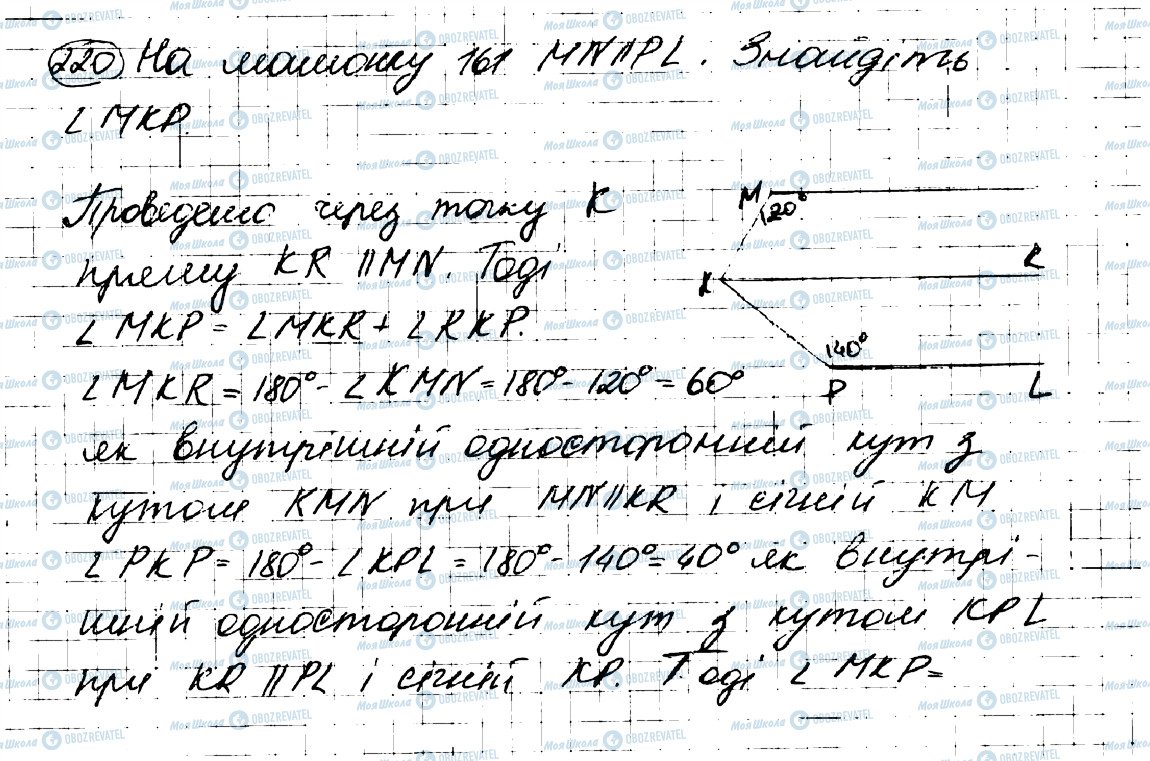 220 На малюнку 161 MN||PL. Знайдіть
∠MKP
Проведемо через точку K
пряму KR ||MN. Тоді
∠MKP = ∠MKR + ∠RKP.
∠MKR = 180° - ∠KMN = 180° - 120° = 60°
як внутрішній односторонній кут з
кутом KMN при MN||KR і січній KM.
∠PKP = 180° - ∠KPL = 180° - 140° = 40° як внутрі-
шній односторонній кут з кутом KPL
при KR ||PL і січній KP. Тоді ∠MKP =
M
120°
K
R
140°
P
L
МояШкола OBOZREVATEL